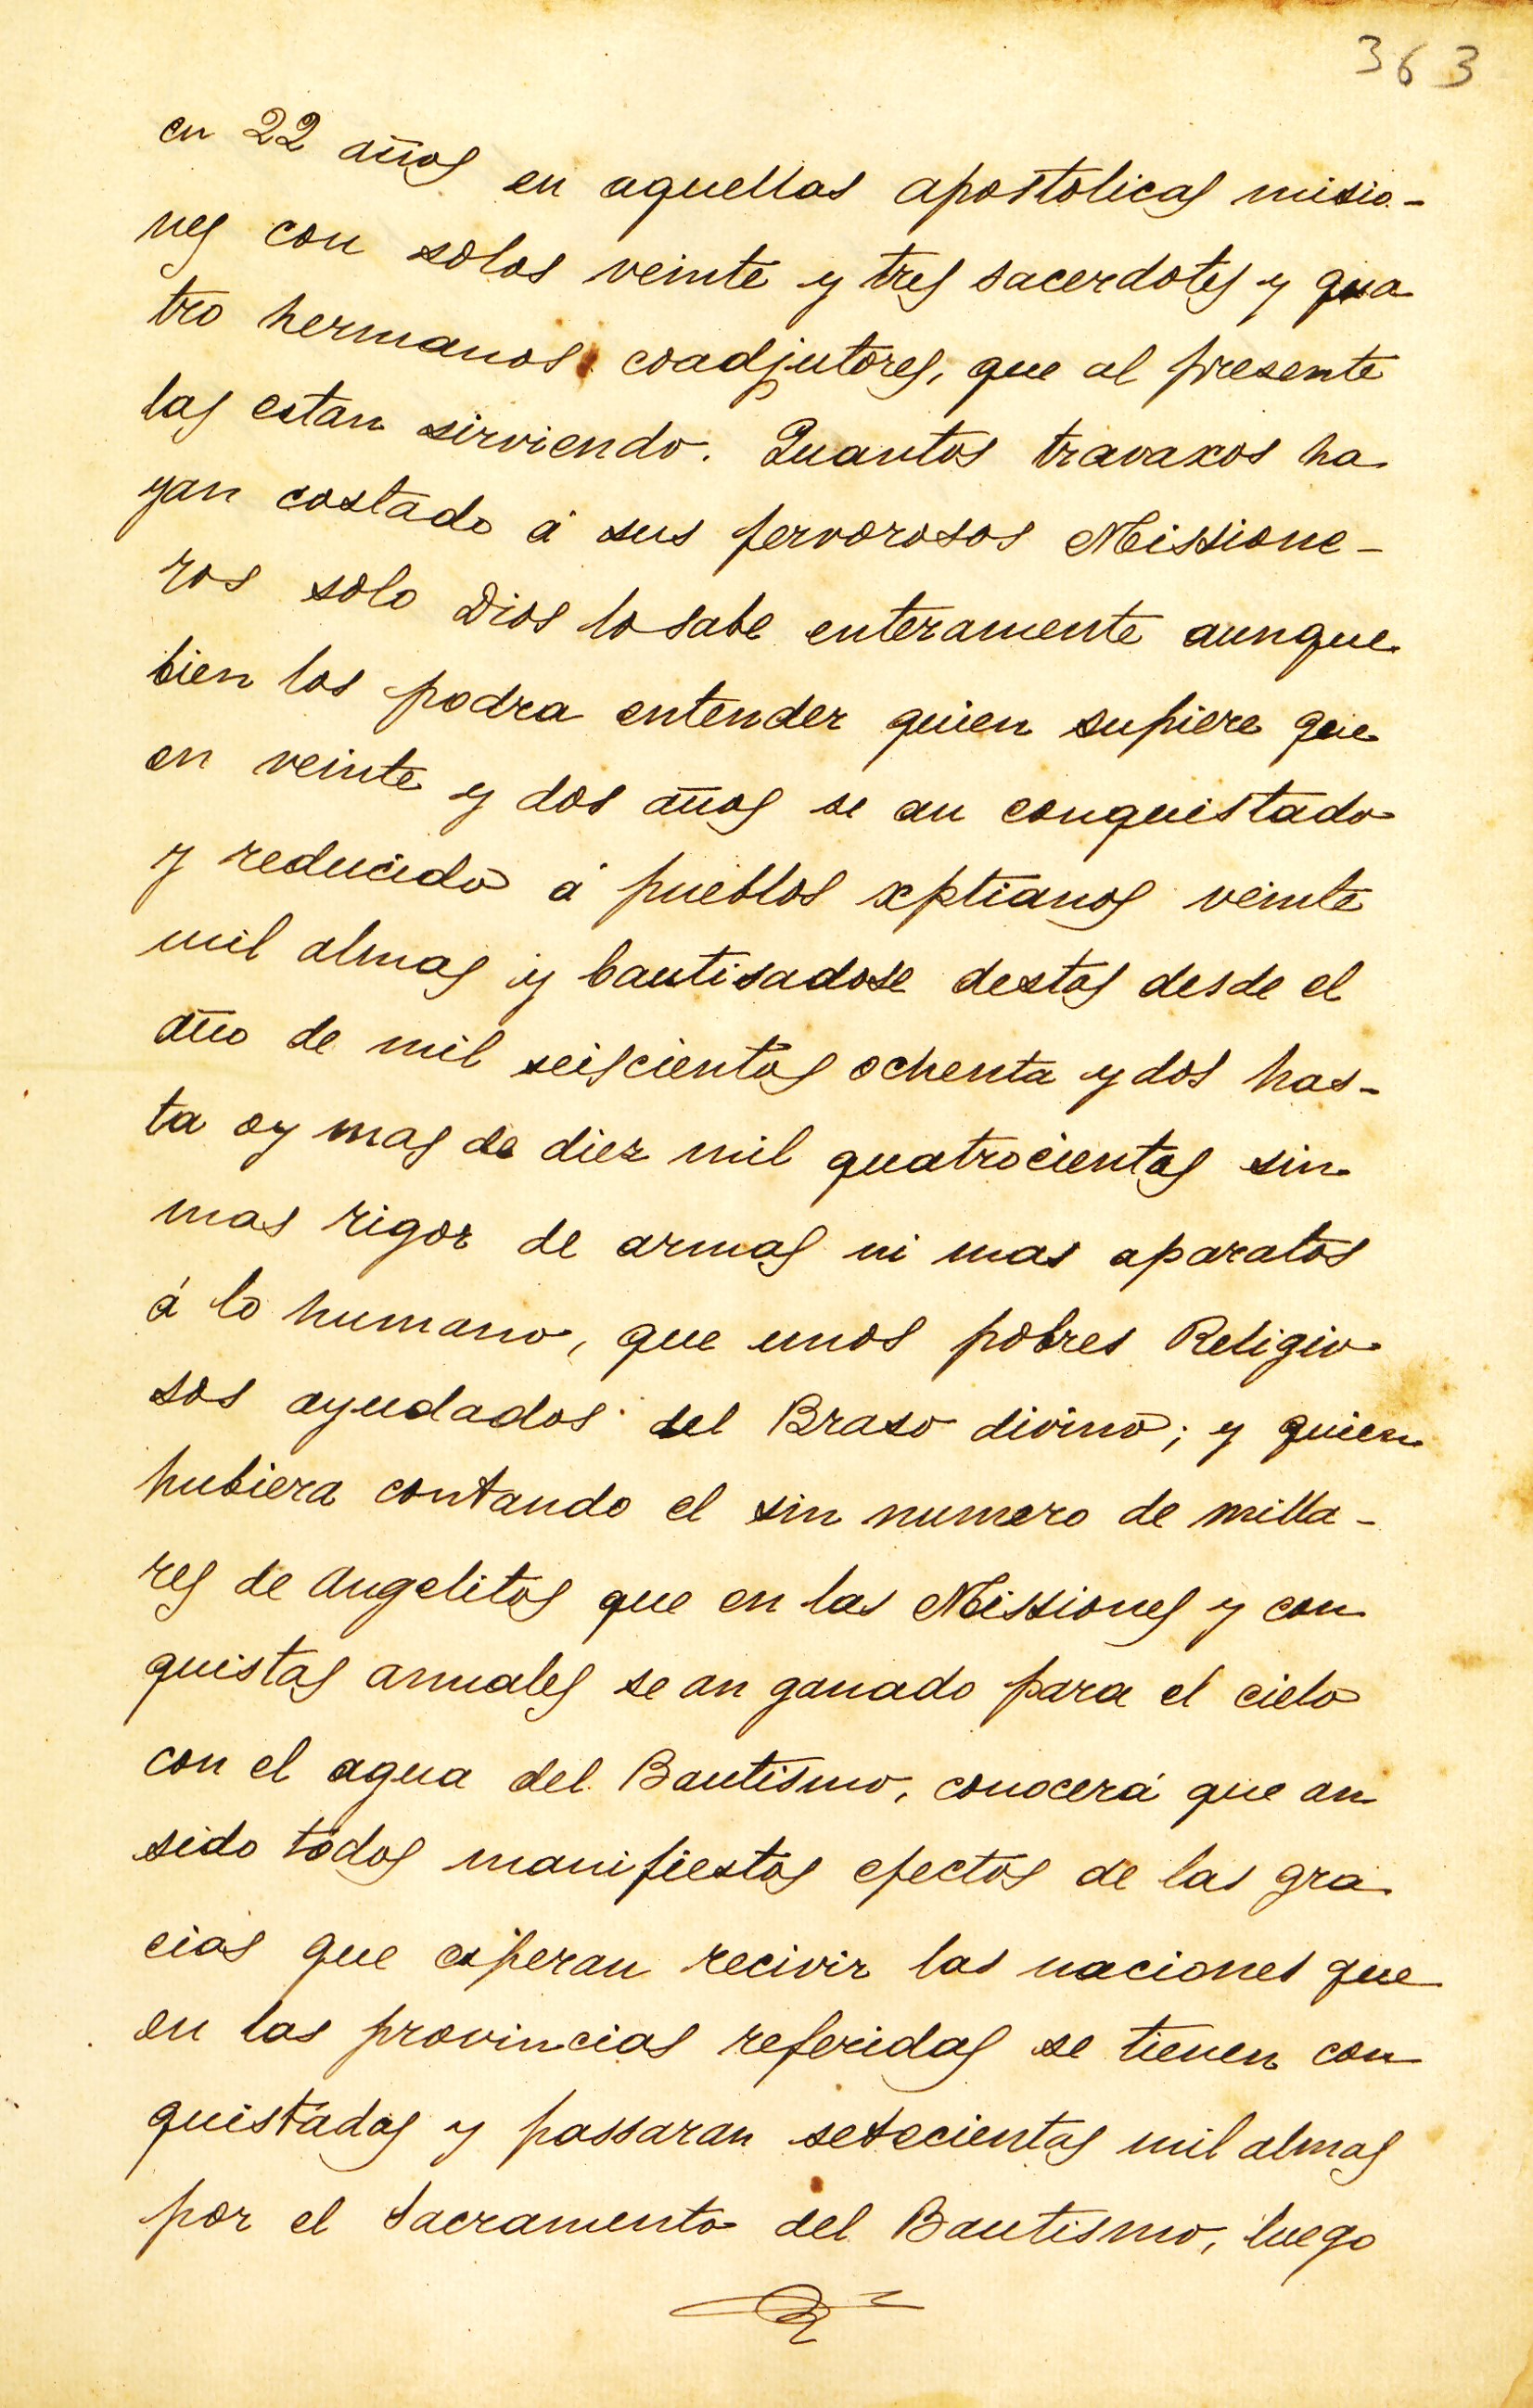 363
en 22 años en aquellas apostolicas misio-
nes con solos veinte y tres sacerdotes y qua
tro hermanos coadjutores, que al presente
las estan sirviendo. Quantos travaxos ha
yan costado á sus fervorosos Missione-
ros solo Dios lo sabe enteramente aunque
bien los podra entender quien supiere que
en veinte y dos años se an conquistado
y reducido á pueblos xptianos veinte
mil almas y bautisadose destas desde el
año de mil seiscientos ochenta y dos has-
ta oy mas de diez mil quatrocientas sin
mas rigor de armas ni mas aparatos
á lo humano, que unos pobres Religio
sos ayudados del Braso divino; y quien
hubiera contando el sin numero de milla-
res de Angelitos que en las Missiones y con
quistas anuales se an ganado para el cielo
con el agua del Bautismo, conocerá que an
sido todos manifiestos efectos de las gra
cias que esperan recivir las naciones que
en las provincias referidas se tienen con
quistadas y passaran setecientas mil almas
por el Sacramento del Bautismo, luego